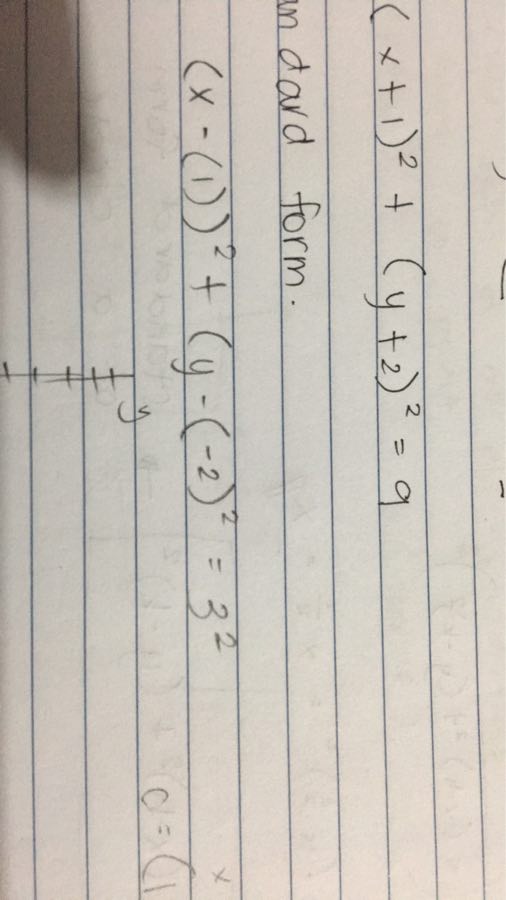 (x+1)² + (y+2)² = 9
andard form.
(x-(1))² + (y-(-2)² = 3²
y
x